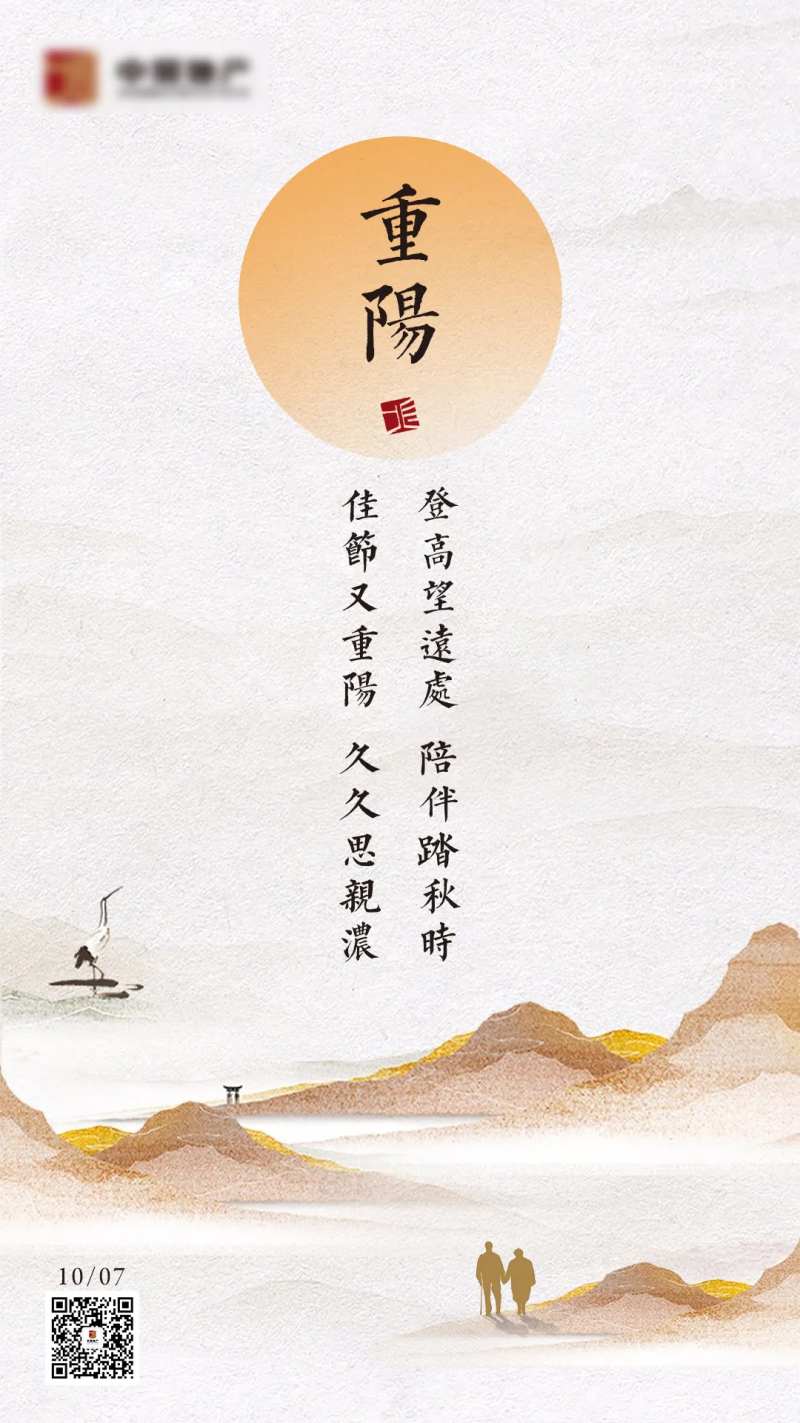 重陽
登高望遠處 陪伴踏秋時
佳節又重陽 久久思親濃
10/07